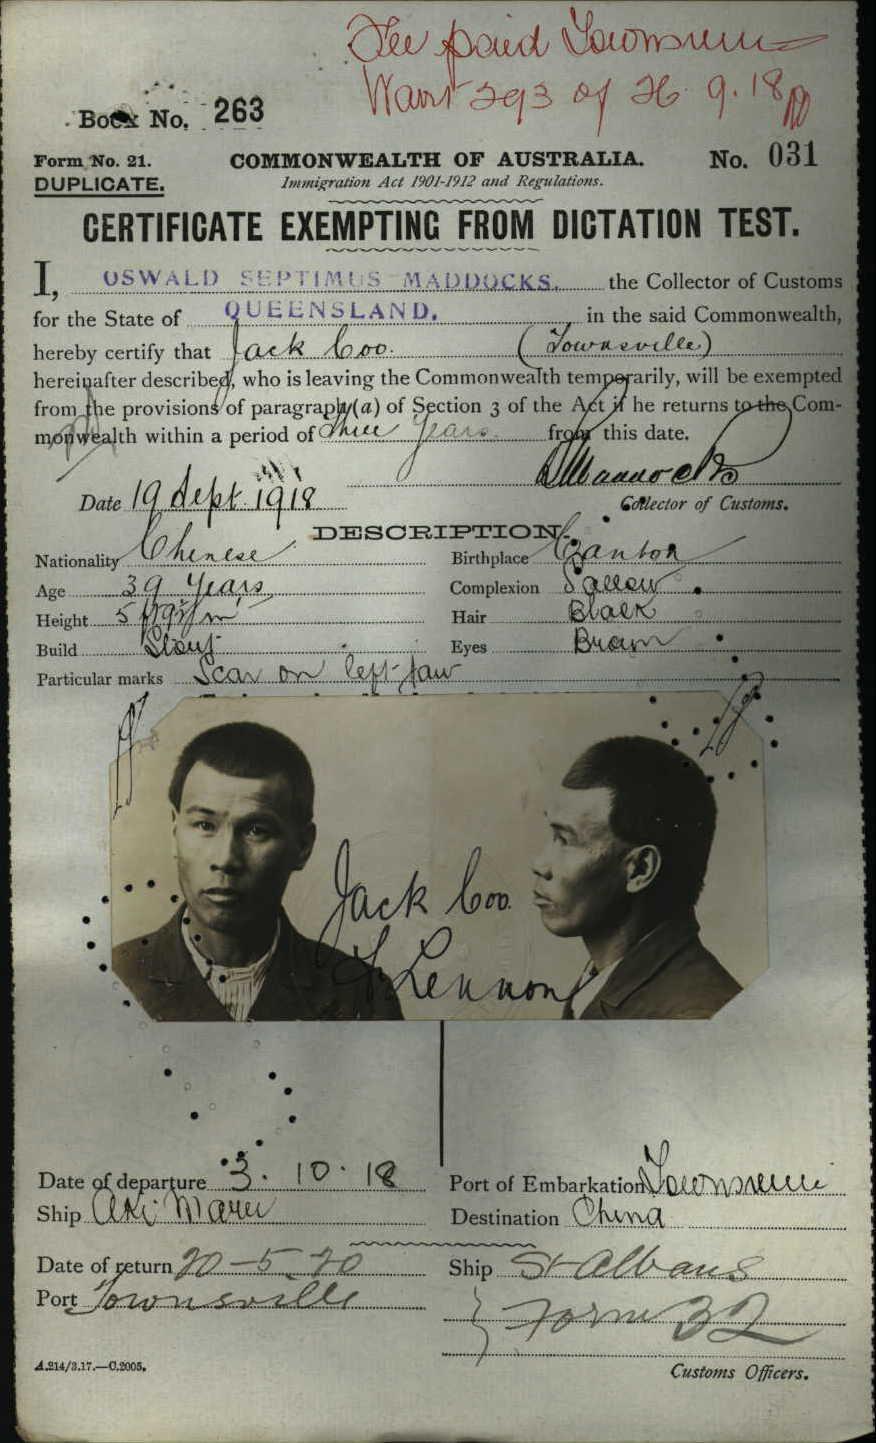 Fee paid Townsville
Warrt 293 of 26.9.18
Book No. 263
Form No. 21.
COMMONWEALTH OF AUSTRALIA.
No. 031
DUPLICATE.
Immigration Act 1901-1912 and Regulations.
CERTIFICATE EXEMPTING FROM DICTATION TEST.
I, OSWALD SEPTIMUS MADDOCKS, the Collector of Customs
for the State of QUEENSLAND. in the said Commonwealth,
hereby certify that Jack Coo. (Townsville)
hereinafter described, who is leaving the Commonwealth temporarily, will be exempted
from the provisions of paragraph (a) of Section 3 of the Act if he returns to the Com-
monwealth within a period of three years from this date.
Maddocks
Date 19 Sept. 1918
Collector of Customs.
DESCRIPTION.
Nationality Chinese
Birthplace Canton
Age 39 years
Complexion Sallow
Height
Hair Black
Build Stout
Eyes Brown
Particular marks Scar on left jaw
Jack Coo.
Lennon
Date of departure 3.10.18
Port of Embarkation Townsville
Ship Aki Maru
Destination China
Date of return 20-5-20
Ship St Albans
Port Townsville
Form 32
A.214/3.17.—C.2005.
Customs Officers.